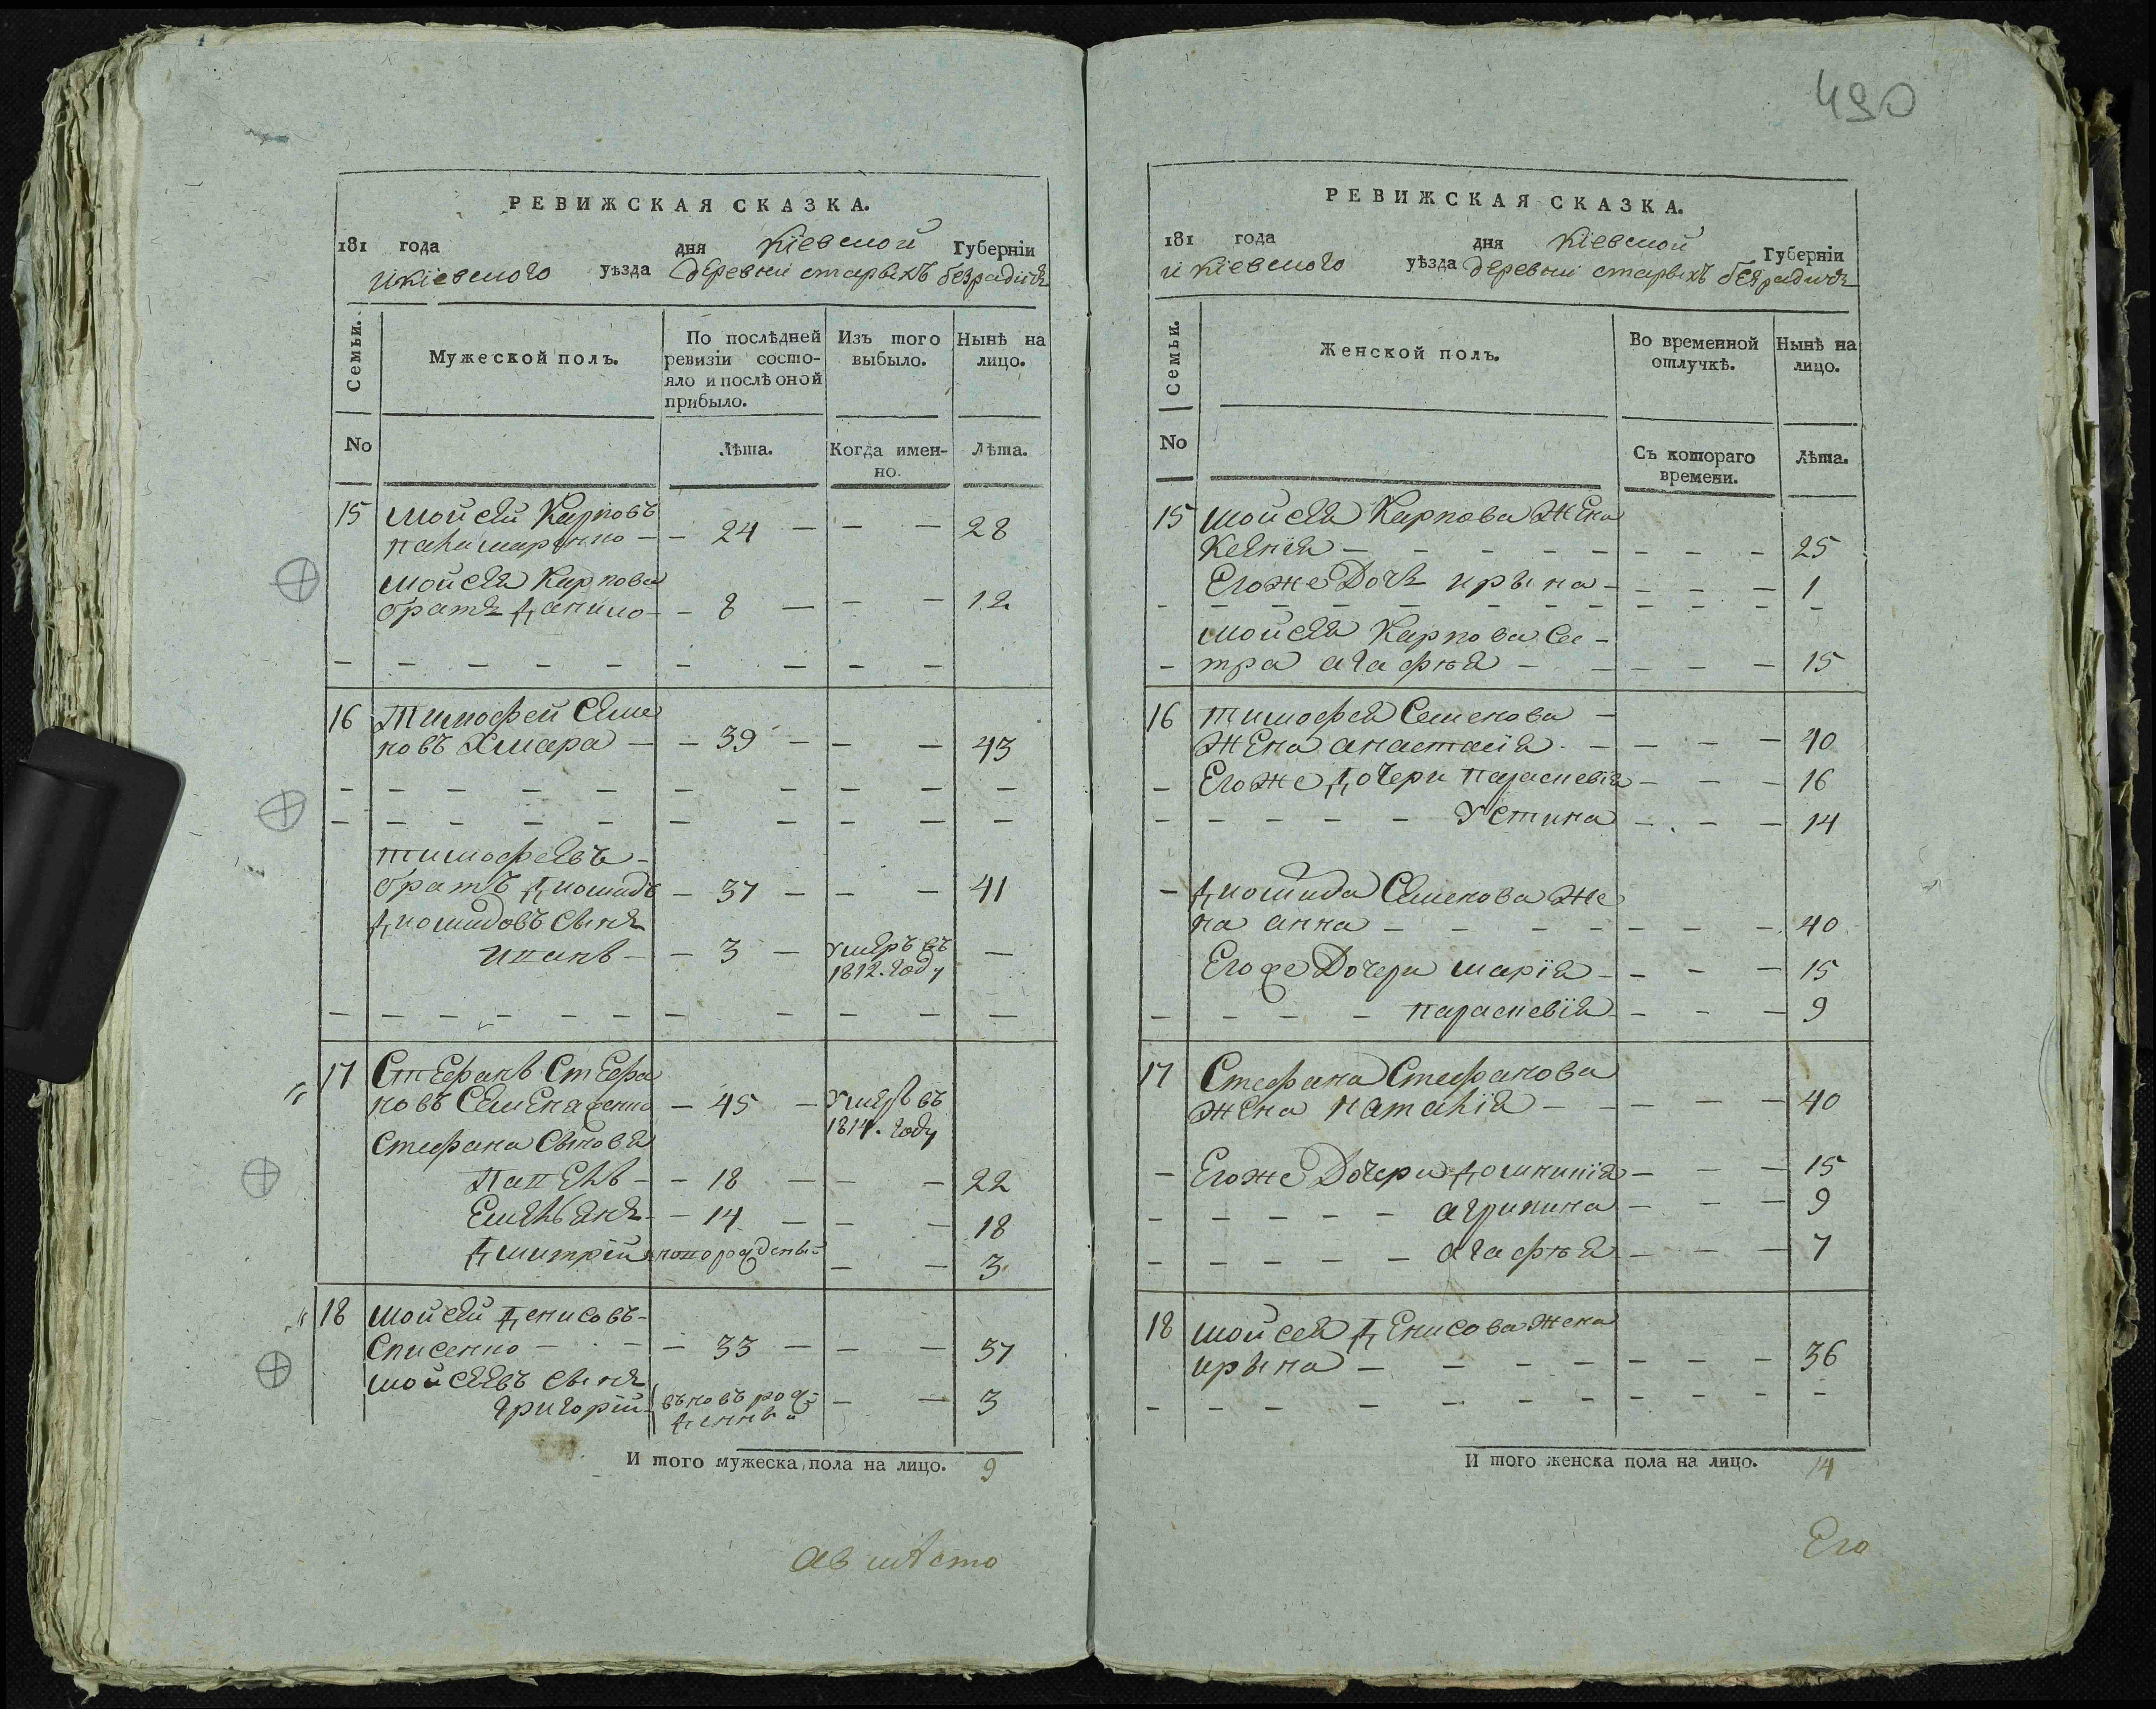 490
РЕВИЖСКАЯ СКАЗКА.
181 года дня Кіевской Губерніи
и Кіевского уѣзда деревни старыхъ безрадичь
Семьи.
Мужеской полъ.
По послѣдней ревизіи состояло и послѣ оной прибыло.
Изъ того выбыло.
Нынѣ на лицо.
No
Лѣта.
Когда именно.
Лѣта.
15 Мойсей Карповъ
- 24 - - - 28
Мойсея Карпова
братъ Данило - - 8 - - - 12
16 Тимофей Семе
новъ Хмара - - 39 - - - 43
Тимофеевъ -
братъ Диомидъ - 37 - - - 41
Диомидовъ сынъ
Иванъ - - 3 - умеръ въ -
1812. году
17 Стефанъ Стефа
новъ - 45 - Умеръ въ
1814. году
Стефана Сыновя
Павелъ - - 18 - - - 22
Емельянъ - - 14 - - - 18
Дмитрій новорожденый - - 3
18 Мойсей Денисовъ -
Списенко - - - 33 - - - 37
Мойсеевъ сынъ
Григорій вьновъ рож
денный - - 3
И того мужеска пола на лицо. 9
Ав мѣсто
РЕВИЖСКАЯ СКАЗКА.
181 года дня Кіевской Губерніи
и Кіевского уѣзда деревни старыхъ безрадичь
Семьи.
Женской полъ.
Во временной отлучкѣ.
Нынѣ на лицо.
No
Съ котораго времени.
Лѣта.
15 Мойсея Карпова Жена
Ксения - - - - - - - - 25
Егоже Дочь ирына - - - - 1
Мойсея Карпова Сес -
тра агафія - - - - - 15
16 Тимофея Семенова -
Жена анастасія - - - - 40
Егоже Дочери Параскевія - - - 16
Устина - - - 14
- Диомида Семенова Же
на анна - - - - - - - - 40
Егоже Дочери Марія - - - - 15
Параскевія - - - 9
17 Стефана Стефанова
Жена Наталія - - - - - 40
- Егоже Дочери Домникія - - - 15
- - - - - агрипина - - - 9
- - - - - агафія - - - 7
18 Мойсея Денисова жена
ирына - - - - - - - - 36
И того женска пола на лицо. 14
Его